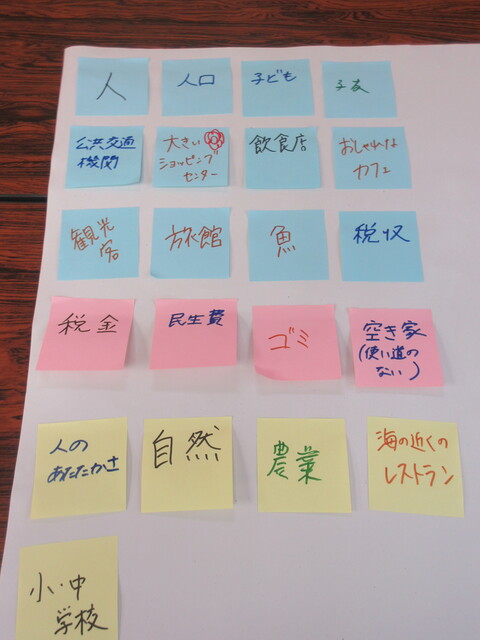 人
人口
子ども
子友
公共交通
機関
大きい
ショッピング
センター
飲食店
おしゃれな
カフェ
観光
客
旅館
魚
税収
税金
民生費
ゴミ
空き家
(使い道の
ない)
人の
あたたかさ
自然
農業
海の近くの
レストラン
小・中
学校